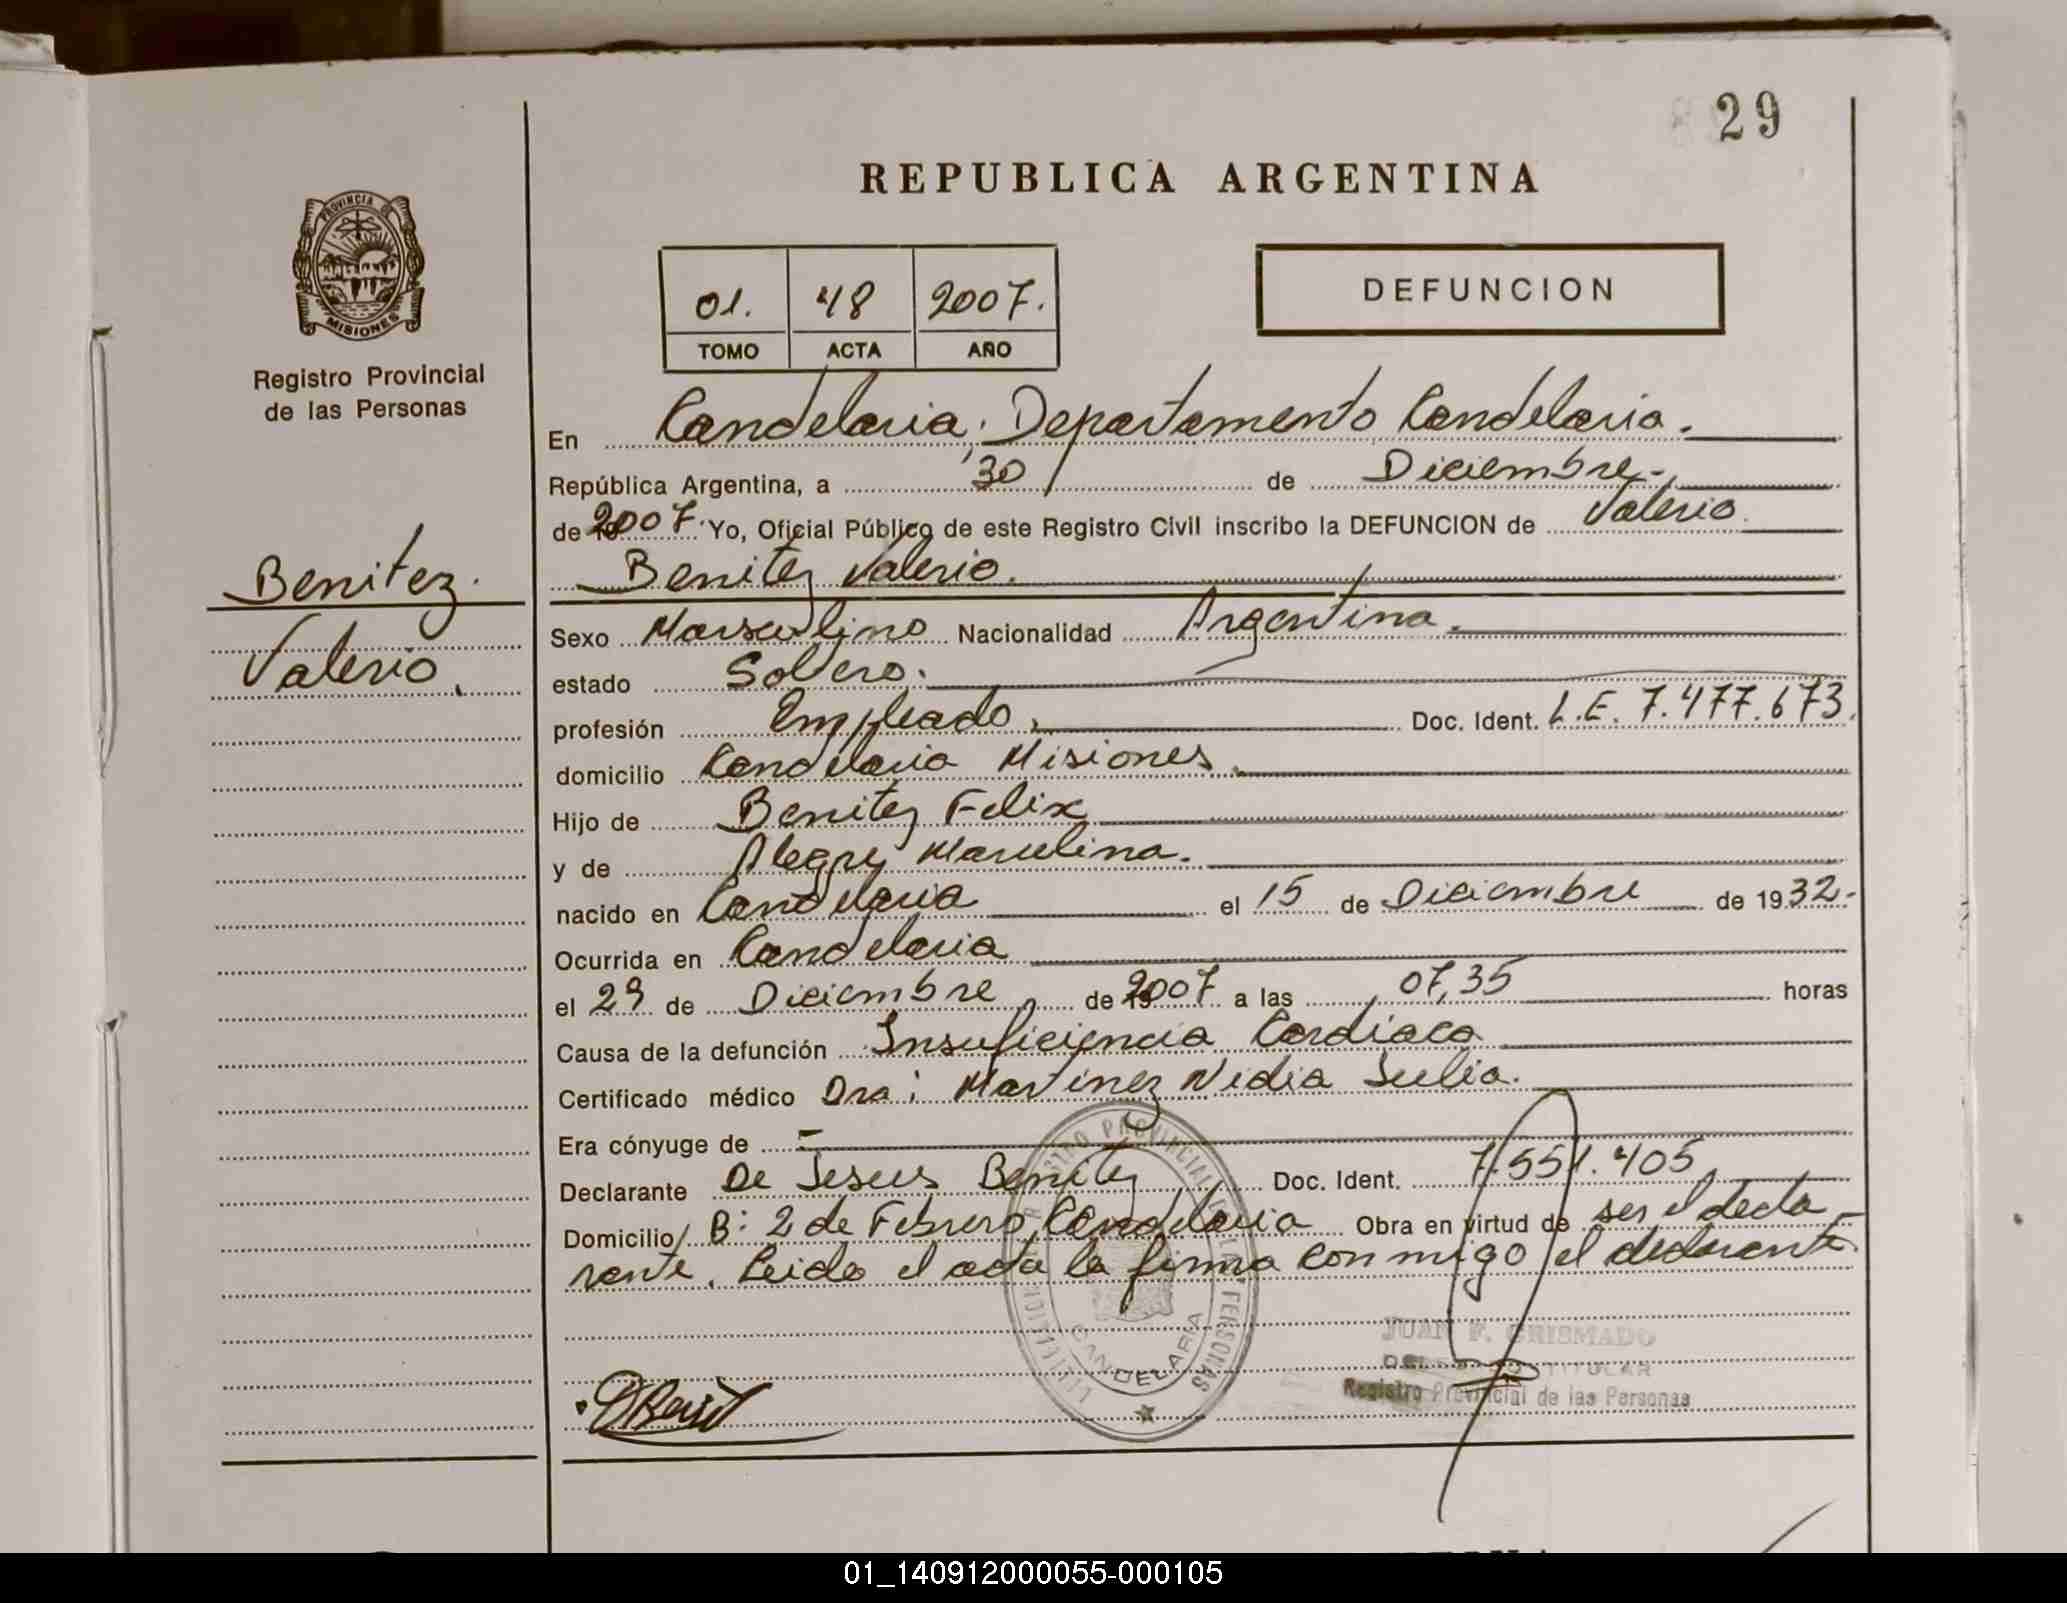 29
REPUBLICA ARGENTINA
PROVINCIA DE
MISIONES
Registro Provincial
de las Personas
01. 48 2007.
TOMO ACTA AÑO
DEFUNCION
Benitez.
Valerio.
En Candelaria, Departamento Candelaria.
República Argentina, a 30 de Diciembre
de 2007. Yo, Oficial Público de este Registro Civil inscribo la DEFUNCION de Valerio
Benitez Valerio.
Sexo Masculino Nacionalidad Argentina.
estado Soltero.
profesión Empleado. Doc. Ident. L.E. 7.477.673.
domicilio Candelaria Misiones
Hijo de Benitez Felix
y de Alegre Marcelina.
nacido en Candelaria el 15 de Diciembre de 1932.
Ocurrida en Candelaria
el 29 de Diciembre de 2007 a las 07,35 horas
Causa de la defunción Insuficiencia Cardiaca
Certificado médico Dra: Martinez Nidia Julia.
Era cónyuge de -
Declarante De Jesus Benitez Doc. Ident. 7.551.405
Domicilio B: 2 de Febrero, Candelaria Obra en virtud de ser el decla
rante. Leida el acta la firma conmigo el declarante.
REGISTRO PROVINCIAL DE LAS PERSONAS
CANDELARIA
JUAN F. GRISMADO
TITULAR
Registro Provincial de las Personas
01_140912000055-000105